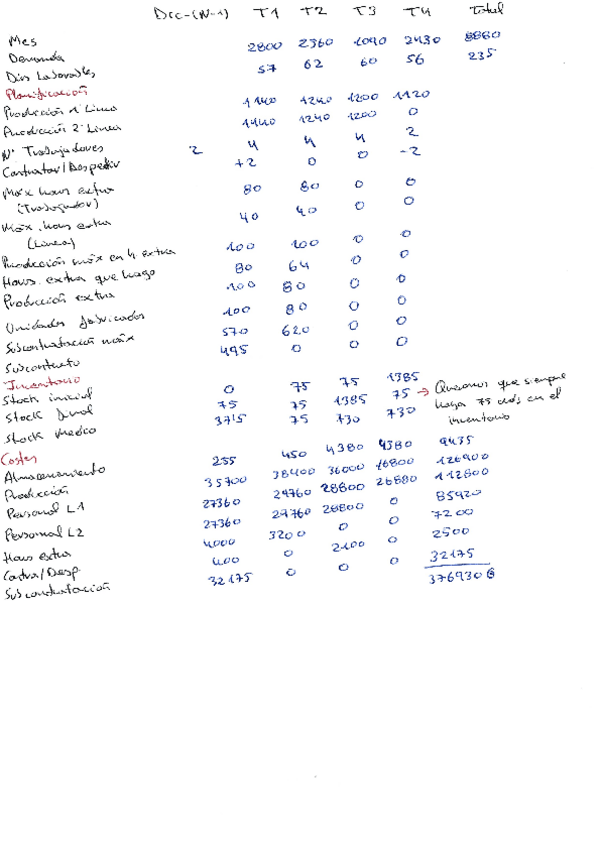 Dic-(N-1) T1 T2 T3 T4 Total
Mes
Demanda 2800 2360 1090 2430 8880
Días Laborables 57 62 60 56 235
Planificación
Producción 1ª Línea 1140 1240 1200 1120
Producción 2ª Línea 1140 1240 1200 0
Nº Trabajadores 2 4 4 4 2
Contratar/Despedir +2 0 0 -2
Máx horas extra 80 80 0 0
(Trabajador)
Máx. horas extra 40 40 0 0
(Línea)
Producción máx en h extra 100 100 0 0
Horas extra que hago 80 64 0 0
Producción extra 100 80 0 0
Unidades fabricadas 100 80 0 0
Subcontratación máx 570 620 0 0
Subcontrato 495 0 0 0
Inventario
Stock inicial 0 75 75 1385
Stock final 75 75 1385 75 → Queremos que siempre
haya 75 uds en el
inventario
Stock medio 37'5 75 730 730
Costes
Almacenamiento 225 450 4380 4380 9435
Producción 35700 38400 36000 16800 126900
Personal L1 27360 29760 28800 26880 112800
Personal L2 27360 29760 28800 0 85920
Horas extra 4000 3200 0 0 7200
Contra/Desp. 400 0 2100 0 2500
Subcontratación 32175 0 0 0 32175
376930 €